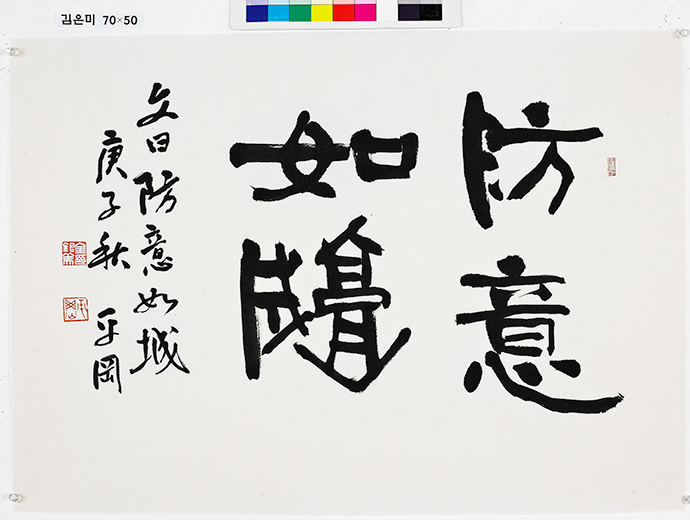 김은미 70×50
防意
如城
文曰防意如城
庚子秋 平岡